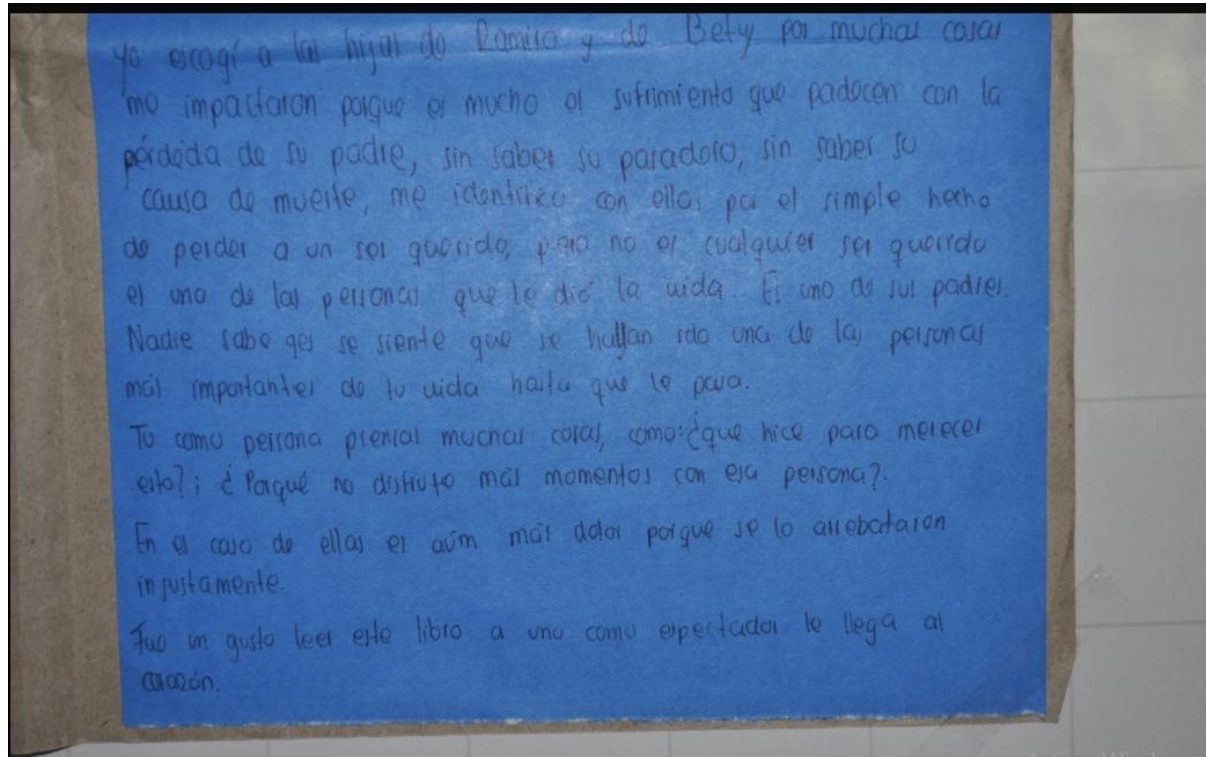 Yo escogí a las hijas de Ramiro y de Bety por muchas cosas
me impactaron porque es mucho el sufrimiento que padecen con la
pérdida de su padre, sin saber su paradero, sin saber su
causa de muerte, me identifico con ellas por el simple hecho
de perder a un ser querido, pero no es cualquier ser querido
es una de las personas que le dió la vida. Es uno de sus padres.
Nadie sabe qes se siente que se hallan ido una de las personas
más importantes de tu vida hasta que le pasa.
Tú como persona piensas muchas cosas, como:¿que hice para merecer
esto?; ¿Porqué no disfruto más momentos con esa persona?.
En el caso de ellas es aúm más dolor porque se lo arrebataron
injustamente.
Fue un gusto leer este libro a uno como espectador le llega al
corazón.